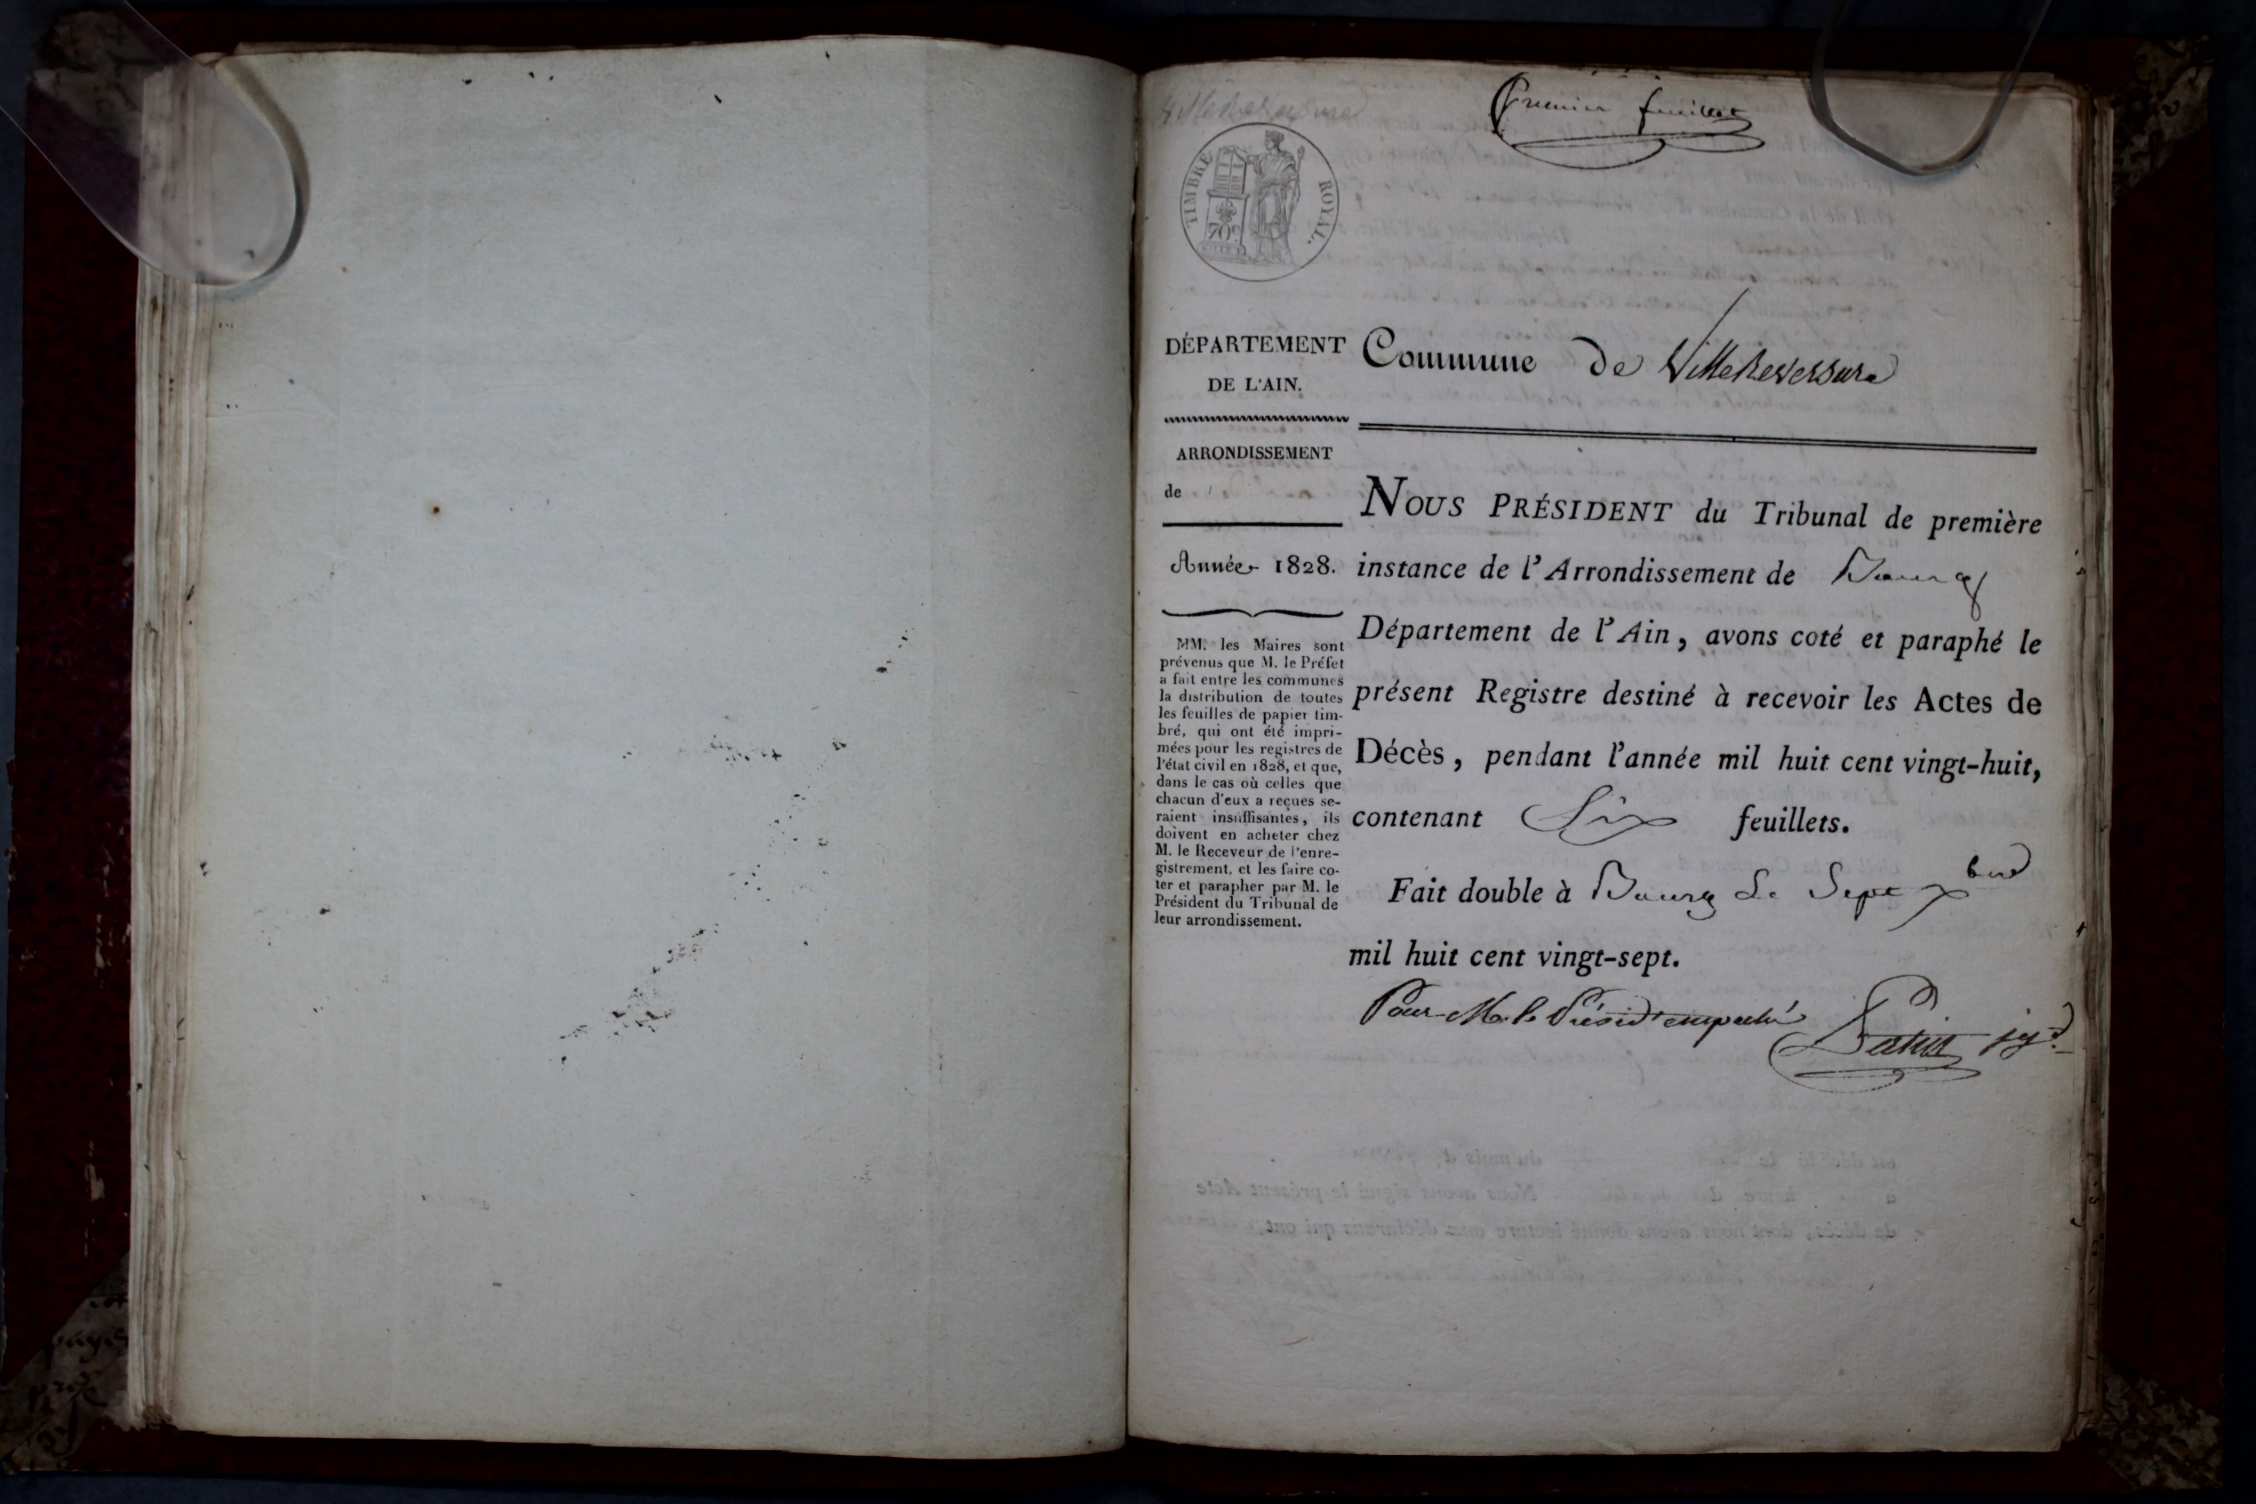 Villereversure
Premier feuillet
TIMBRE ROYAL.
70c
DÉPARTEMENT
DE L'AIN.
ARRONDISSEMENT
de
Année 1828.
MM. les Maires sont
prévenus que M. le Préfet
a fait entre les communes
la distribution de toutes
les feuilles de papier tim-
bré, qui ont été impri-
mées pour les registres de
l'état civil en 1828, et que,
dans le cas où celles que
chacun d'eux a reçues se-
raient insuffisantes, ils
doivent en acheter chez
M. le Receveur de l'enre-
gistrement, et les faire co-
ter et parapher par M. le
Président du Tribunal de
leur arrondissement.
Commune de Villereversure
NOUS PRÉSIDENT du Tribunal de première
instance de l'Arrondissement de Bourg
Département de l'Ain, avons coté et paraphé le
présent Registre destiné à recevoir les Actes de
Décès, pendant l'année mil huit cent vingt-huit,
contenant Six feuillets.
Fait double à Bourg Le Sept Xbre
mil huit cent vingt-sept.
Pour M. le Présidt empêché